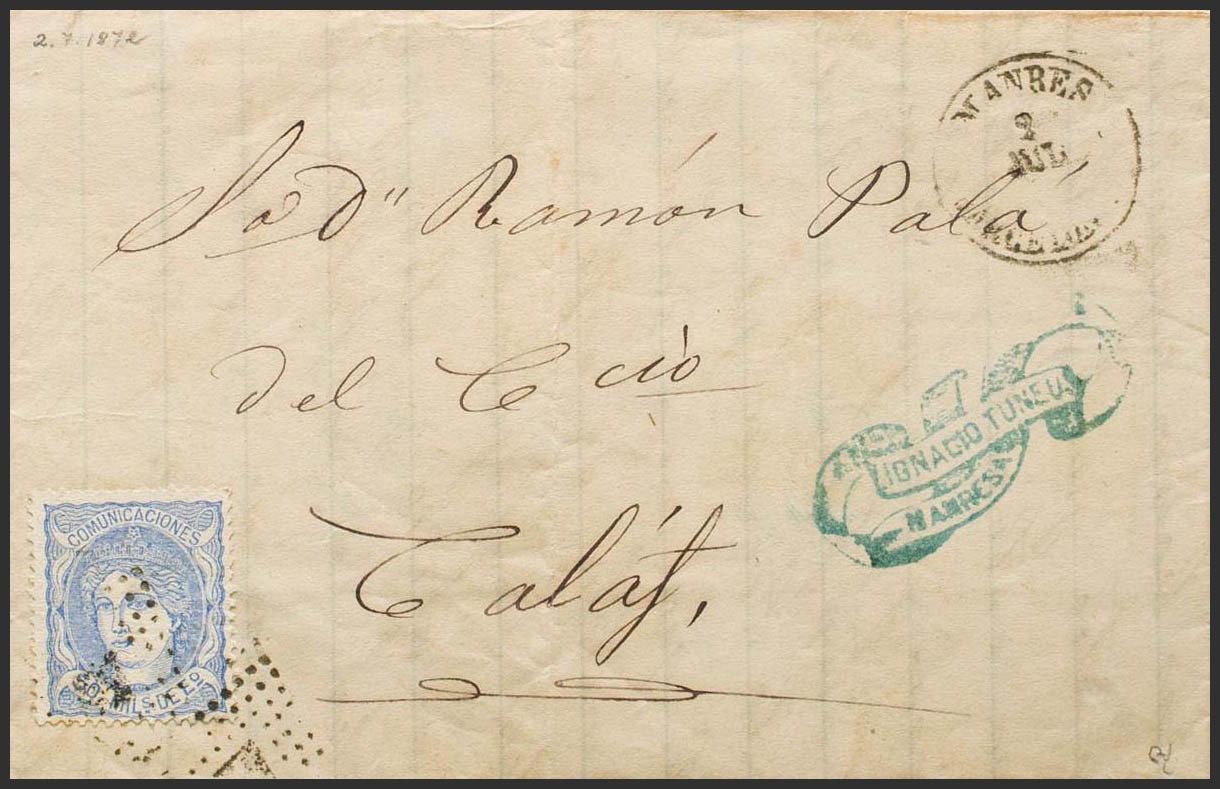 2.7.1872
MANRES
2
JUL
BARCELON
Sor Dn Ramón Palá
del Ccio
IGNACIO TUNEU
MANRESA
Caláf,
COMUNICACIONES
50 MILS. DE Eo